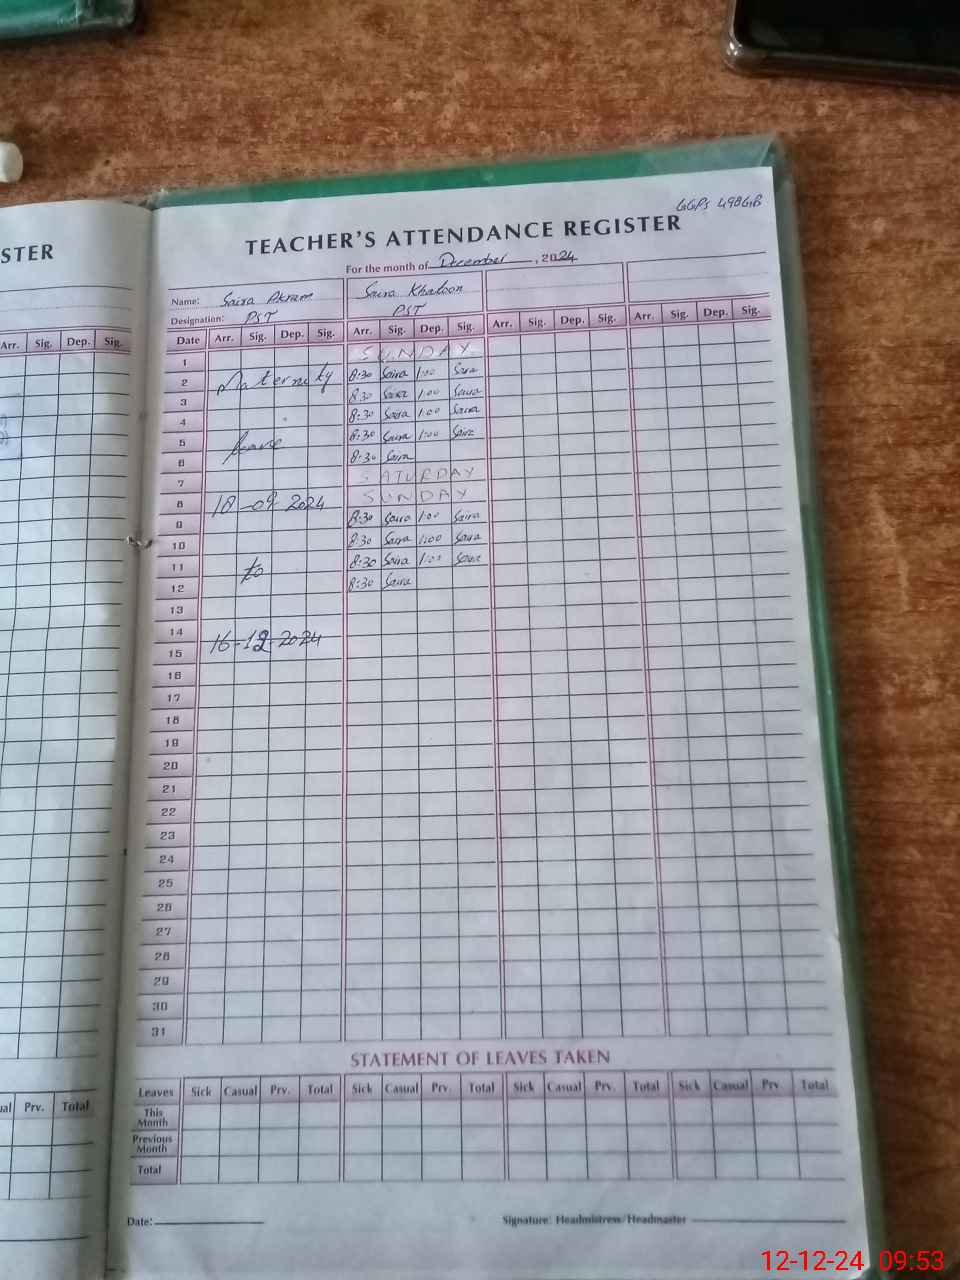 GGPS 498GB
STER
TEACHER'S ATTENDANCE REGISTER
For the month of December, 2024
Name: Saira Akram Saira Khatoon
Designation: PST PST
Arr. Sig. Dep. Sig. Date Arr. Sig. Dep. Sig. Arr. Sig. Dep. Sig. Arr. Sig. Dep. Sig. Arr. Sig. Dep. Sig.
1 SUNDAY
2 Maternity 8:30 Saira 1:00 Saira
3 8:30 Saira 1:00 Saira
4 8:30 Saira 1:00 Saira
5 leave 8:30 Saira 1:00 Saira
6 8:30 Saira
7 SATURDAY
8 18-09-2024 SUNDAY
9 8:30 Saira 1:00 Saira
10 8:30 Saira 1:00 Saira
11 to 8:30 Saira 1:00 Saira
12 8:30 Saira
13
14 16-12-2024
15
16
17
18
19
20
21
22
23
24
25
26
27
28
29
30
31
STATEMENT OF LEAVES TAKEN
ual Prv. Total Leaves Sick Casual Prv. Total Sick Casual Prv. Total Sick Casual Prv. Total Sick Casual Prv. Total
This
Month
Previous
Month
Total
Date: Signature: Headmistress/Headmaster
12-12-24 09:53